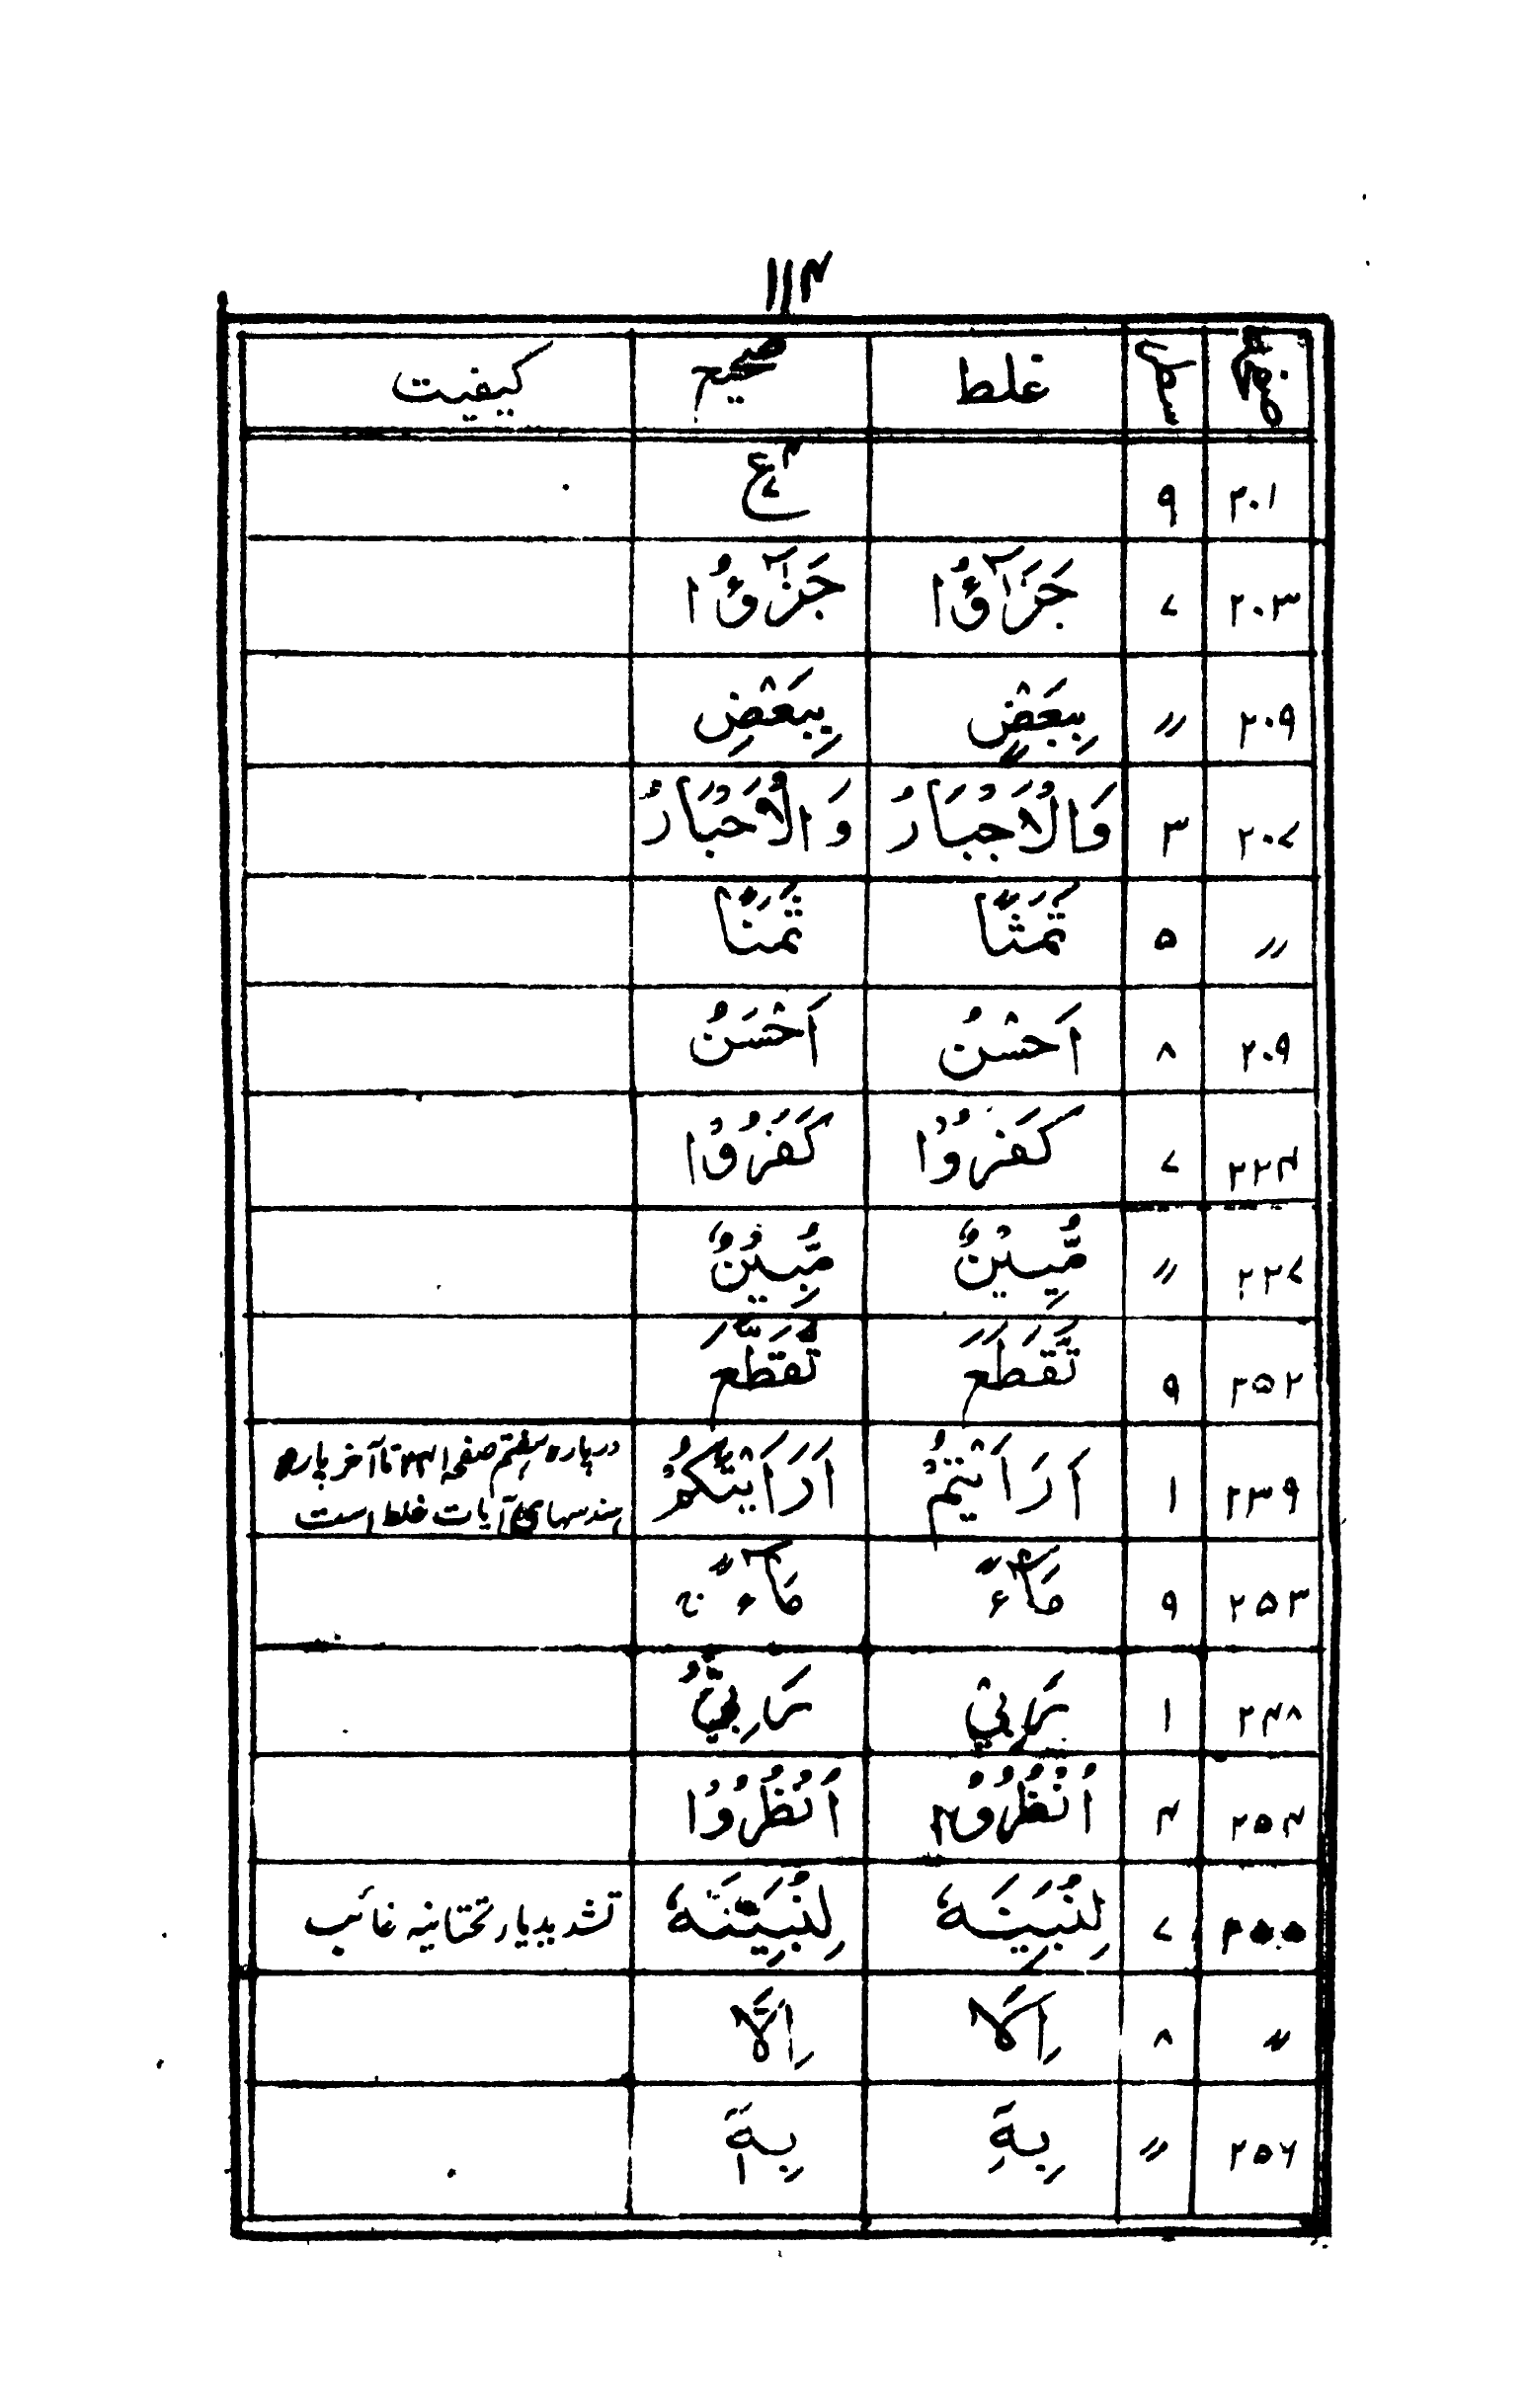 ۱۱۴
صفحہ سطر غلط صحیح کیفیت
۲۰۱ ۹ ع
۲۰۳ ۷ جَزَآؤُا جَزٰٓؤُا
۲۰۹ // بِبَعْضٍ بِبَعْضِ
۲۰۷ ۳ وَالْاَحْبَارُ وَالْاَحْبَارُ
// ۵ ثَمَثًا ثَمَنًا
۲۰۹ ۸ اَحْشنُ اَحْسَنُ
۲۲۴ ۷ كَفَرُوْا كَفَرُوْا
۲۲۷ // مُّبِيْنٌ مُّبِيْنٌ
۲۵۲ ۹ تَّقَطَعَ تَّقَطَّعَ
۲۳۹ ۱ اَرَاَيْتُمْ اَرَاَيْتَكُمْ درپارہ ہفتم صفحہ ۲۳۱ تا آخر پارہ
ہندسہای آیات غلط است
۲۵۳ ۹ مَآءً مَآءً ج
۲۴۸ ۱ رَبِّيْ رَبِّيْ
۲۵۴ ۴ اُنْظُرُوْا اُنْظُرُوْا
۲۵۵ ۷ لِنُبَيِنَهٗ لِنُبَيِّنَهٗ تشدید یار تحتانیہ غائب
// ۸ اِلَا اِلَّا
۲۵۶ // بِهَِ بِهٖ